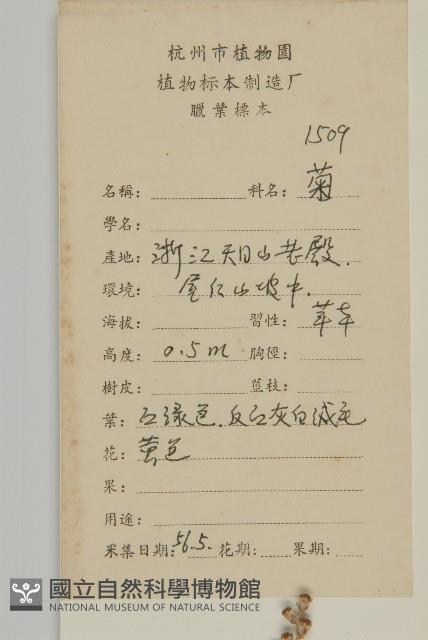 杭州市植物園
植物标本制造厂
臘葉標本
1509
名稱： 科名：菊
學名：
產地：浙江天目山老殿.
環境：屋后山坡中.
海拔： 習性：草本
高度：0.5m 胸徑：
樹皮： 莖枝：
葉：正绿色.反面灰白绒毛
花：黄色
果：
用途：
采集日期：56.5. 花期： 果期：
國立自然科學博物館
NATIONAL MUSEUM OF NATURAL SCIENCE